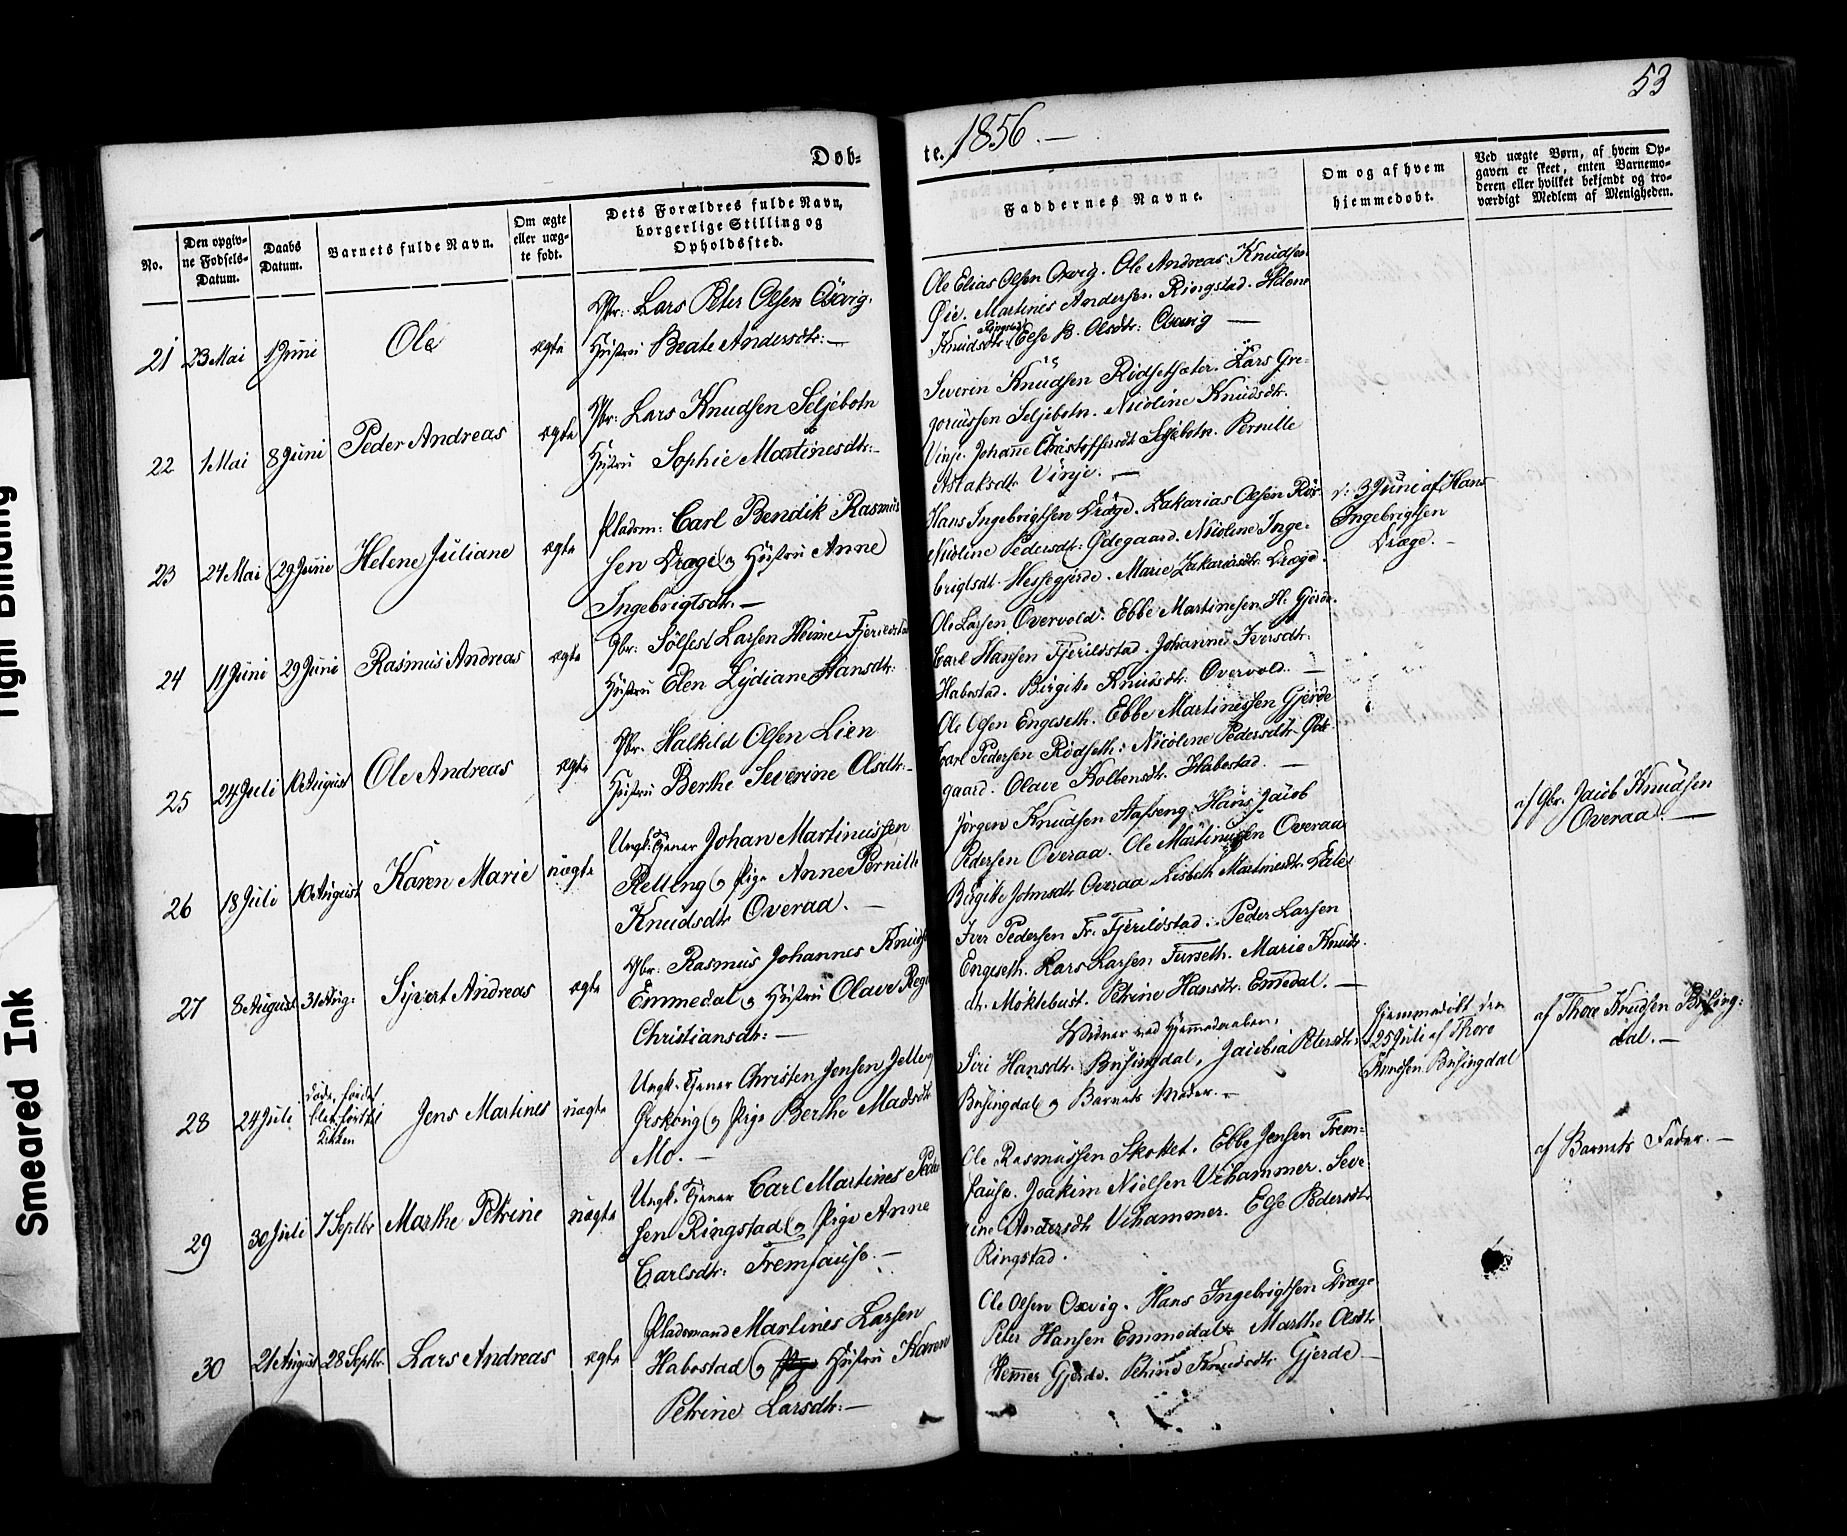 53
Døb- te. 1856. —
No.
Den opgivne Fødsels-Datum.
Daabs Datum.
Barnets fulde Navn.
Om ægte eller uægte født.
Dets Forældres fulde Navn, borgerlige Stilling og Opholdssted.
Faddernes Navne.
Om og af hvem hjemmedøbt.
Ved uægte Børn, af hvem Opgaven er skeet, enten Barnemoderen eller hvilket bekjendt og troværdigt Medlem af Menigheden.
21 23 Mai 1 Juni Ole ægte
Gbr: Lars Peter Olsen Oxvig.
Hustru Beate Andersdtr: —
Ole Elias Olsen Oxvig. Ole Andreas Knudsen
Øie. Martines Andersen Ringstad. Helene
Knudsdtr Ringstad Else B. Olsdtr: Oxvig —
22 1 Mai 8 Juni Peder Andreas ægte
Gbr: Lars Knudsen Seljebotn
Hustru Sophie Martinesdtr: —
Severin Knudsen Rødsetsæter. Lars Gre-
goriussen Seljebotn. Nicoline Knudsdtr.
Vinje. Johanne Christoffersdt Seljebotn. Pernille
Aslaksdtr Vinje. —
23 24 Mai 29 Juni Helene Juliane ægte
Pladsm: Carl Bendik Rasmus
sen Dræge og Hustru Anne
Ingebrigtsdtr. —
Hans Ingebrigtsen Dræge. Zakarias Olsen
Nicoline Pedersdt: Ødegaard. Nicoline Inge-
brigtsdt. Hessegjerde. Marie Zakariasdtr Dræge.
d: 3 Juni af Hans
Ingebrigtsen
Dræge. —
24 11 Juni 29 Juni Rasmus Andreas ægte
Gbr: Sølfest Larsen
Hustru Elen Lydiane Hansdtr.
Ole Larsen Overvold. Ebbe Martinesen H. Gjerde.
Carl Hansen Fjerildstad. Johanne Iversdtr.
Habostad. Birgitte Knudsdtr. Overvold. —
25 24 Juli 10 August Ole Andreas ægte
Gbr. Halkild Olsen Lien
Hustru Berthe Severine Olsdtr. —
Ole Olsen Engeseth. Ebbe Martinessen Gjerde
Carl Pedersen Rødseth: Nicoline Pedersdtr Øde-
gaard. Olave Kolbensdtr. Habostad. —
26 18 Juli 10 August Karen Marie uægte
Ungk. Tjener Johan Martinussen
og Pige Anne Pernille
Knudsdtr Overaa. —
Jørgen Knudsen Hans Jacob
Pedersen Overaa. Ole Martinussen Overaa
Birgitte Johnsdtr Overaa Lisbeth Martinesdtr
af Gbr. Jacob Knudsen
Overaa. —
27 8 August 31 Aug: Sivert Andreas ægte
Gbr: Rasmus Johannes Knuds
Emmedal og Hustru Olave
Christiansdtr: —
Iver Pedersen Fr. Fjerildstad. Peder Larsen
Engeseth. Lars Larsen Furseth. Marie Knuds-
dtr. Møklebust. Petrine Hansdtr. Emedal. —
28 24 Juli Jens Martines uægte
Ungk. Tjener Christen Jensen
Ørskoug og Pige Berthe Madsdtr
Mo. —
Vidner ved Hjemmedaaben.
Siri Hansdtr. Brusingdal, Jacobia Petersdtr:
Brusingdal og Barnets Moder. —
Hjemmedøbt den
25 Juli af Thore
Knudsen Brusingdal
af Thore Knudsen Brusing-
dal. —
29 30 Juli 7 Septbr Marthe Petrine uægte
Ungk. Tjener Carl Martines Peder
sen Ringstad og Pige Anne
Carlsdtr: Fremhause. —
Ole Rasmussen Skottet. Ebbe Jensen Frem-
hause. Joakim Nielsen Vihammer. Seve
rine Andersdtr Vihammer. Else Pedersdtr
Ringstad.
af Barnets Fader. —
30 21 August 28 Septbr. Lars Andreas ægte
Pladsmand Martines Larsen
Habostad og Hustru Karen
Petrine Larsdtr: —
Ole Olsen Oxvig. Hans Ingebrigtsen Dræge
Peter Hansen Emmedal Marthe Olsdtr
Hemer Gjerde. Petrine Knudsdtr. Gjerde —
Tight Binding
Smeared Ink